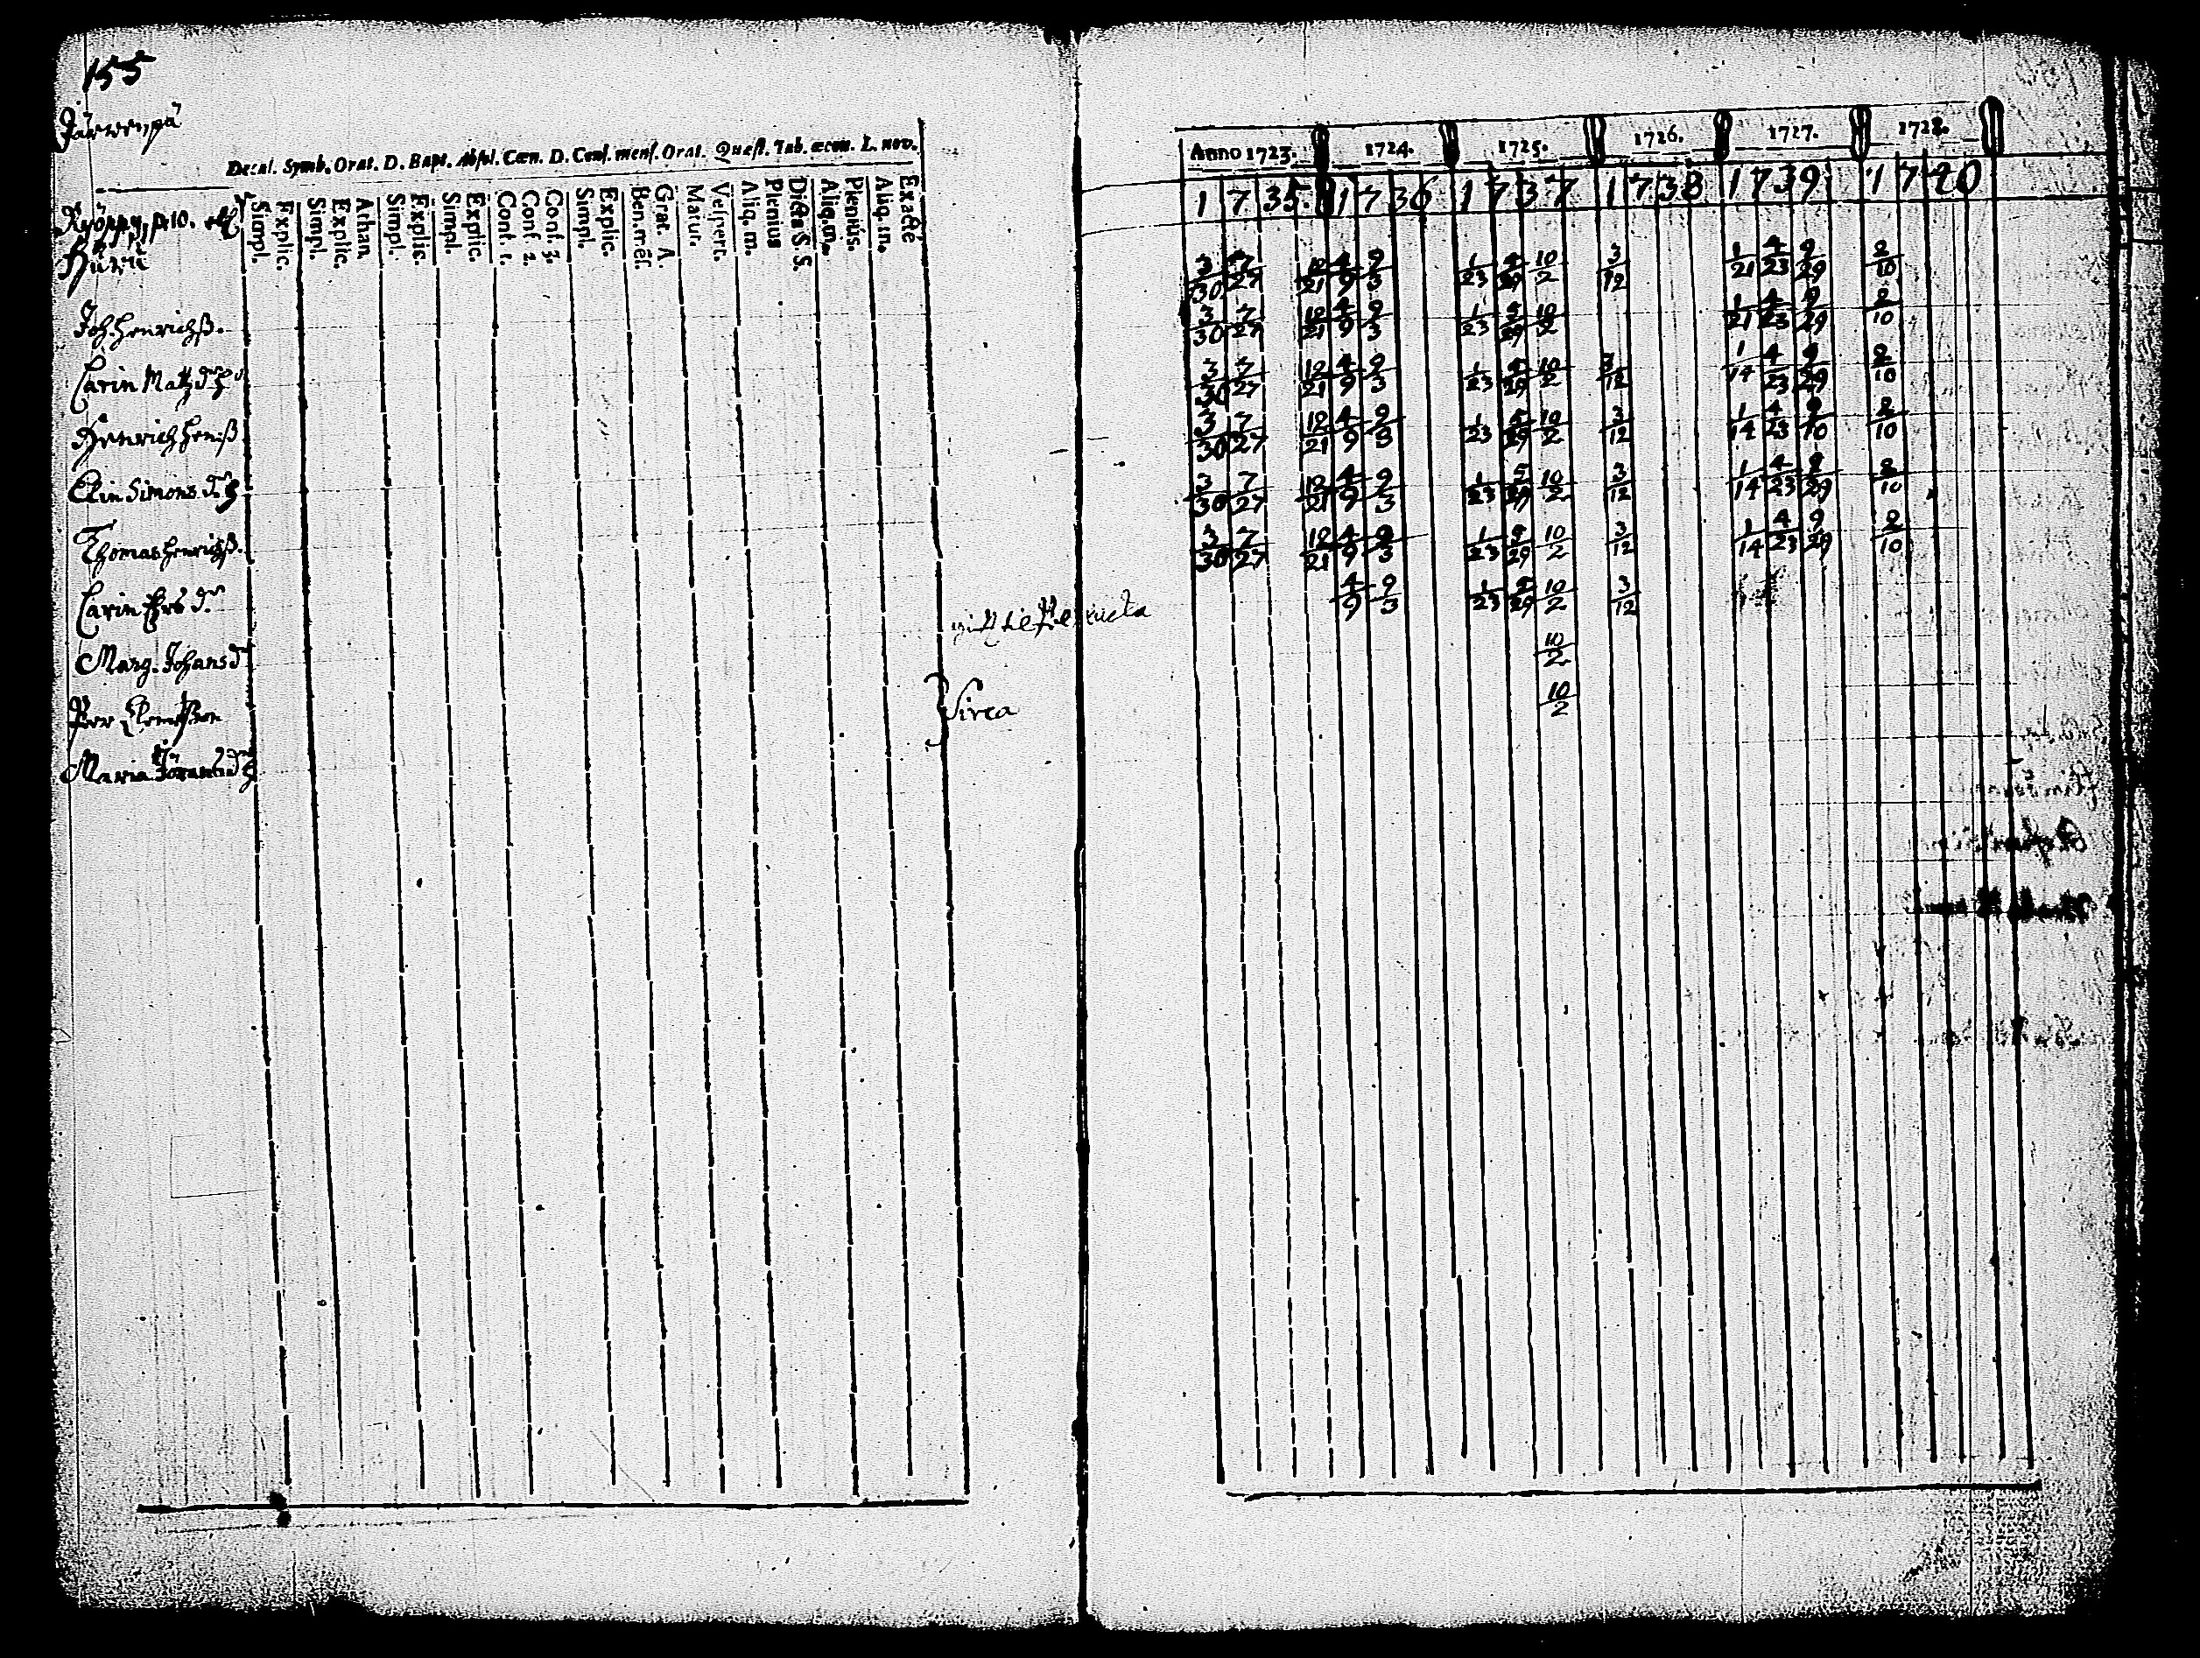 155
Järwenpä
Decal. Symb. Orat. D. Bapt. Absol. Cœn. D. Conf. mens. Orat. Quæst. Tab. œcon. L. nov.
Simpl. Explic. Simpl. Explic. Athan. Simpl. Explic. Simpl. Explic. Conf. 1. Conf. 2. Conf. 3. Simpl. Explic. Ben. mēs. Grat. A. Matut. Vespert. Aliq. m. Plenius Dicta S. S. Aliq. m. Plenius. Aliq. m. Exacte
Joh. Henrichß.
Carin Matz dr
Henrich Henß
Elin Simons dr
Thomas Henrichß.
Carin Ers dr
Marg. Johans dr
Maria Jörans dr
Sirca
Anno 1723. 1724. 1725. 1726. 1727. 1728.
1735. 1736 1737 1738 1739. 1740
3/30 7/27 12/21 4/9 9/3 1/23 5/29 10/2 3/12 1/21 4/23 9/29 2/10
3/30 7/27 12/21 4/9 9/3 1/23 5/29 10/2 1/21 4/23 9/29 2/10
3/30 7/27 12/21 4/9 9/3 1/23 5/29 10/2 3/12 1/14 4/23 9/29 2/10
3/30 7/27 12/21 4/9 9/3 1/23 5/29 10/2 3/12 1/14 4/23 9/10 2/10
3/30 7/27 12/21 4/9 9/3 1/23 5/29 10/2 3/12 1/14 4/23 9/29 2/10
3/30 7/27 12/21 4/9 9/3 1/23 5/29 10/2 3/12 1/14 4/23 9/29 2/10
4/9 9/3 1/23 5/29 10/2 3/12
10/2
10/2